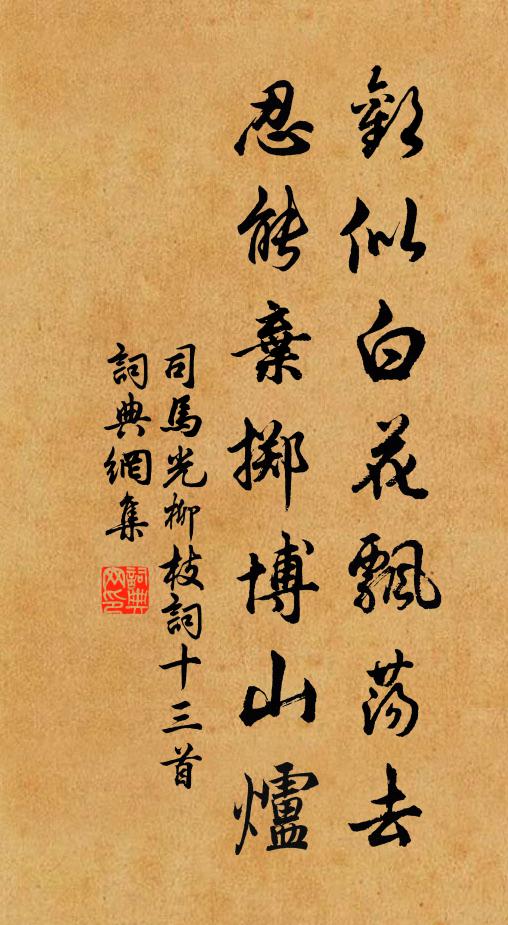 歡似白花飄蕩去
忍能棄擲博山爐
司馬光柳枝詞十三首
詞典網集
詞典網印